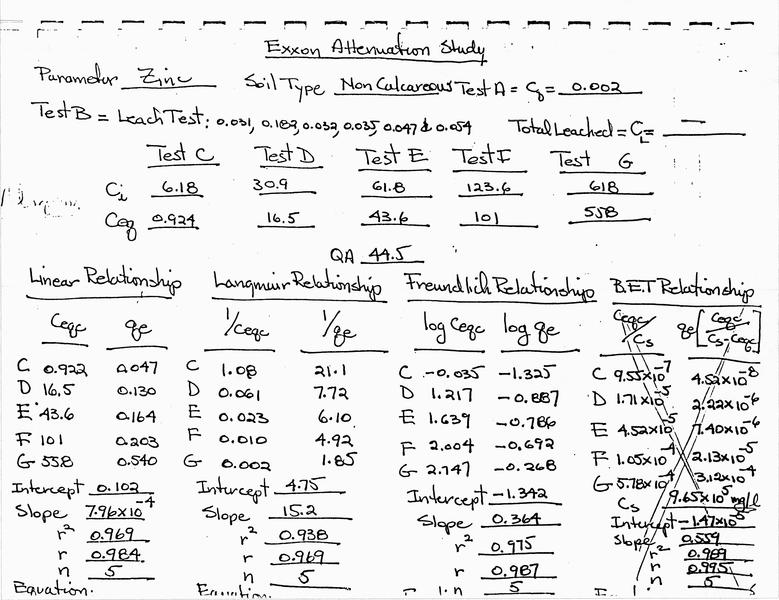 Exxon Attenuation Study
Parameter Zinc Soil Type Non Calcareous Test A = Cq = 0.002
Test B = Leach Test: 0.031, 0.182, 0.032, 0.035, 0.047 & 0.054 Total Leached = CL = —
Test C Test D Test E Test F Test G
Ci 6.18 30.9 61.8 123.6 618
Ceq 0.924 16.5 43.6 101 558
QA 44.5
Linear Relationship Langmuir Relationship Freundlich Relationship BET Relationship
Ceqc qe 1/Ceqc 1/qe log Ceqc log qe Ceqc/Cs qe[Ceqc/Cs-Ceqc]
C 0.922 0.047 C 1.08 21.1 C -0.035 -1.325 C 9.55x10-7 4.52x10-8
D 16.5 0.130 D 0.061 7.72 D 1.217 -0.887 D 1.71x10-5 2.22x10-6
E 43.6 0.164 E 0.023 6.10 E 1.639 -0.786 E 4.52x10-5 7.40x10-6
F 101 0.203 F 0.010 4.92 F 2.004 -0.692 F 1.05x10-4 2.13x10-5
G 558 0.540 G 0.002 1.85 G 2.747 -0.268 G 5.78x10-4 3.12x10-4
Intercept 0.102 Intercept 4.75 Intercept -1.342 Cs 9.65x105 mg/l
Slope 7.96x10-4 Slope 15.2 Slope 0.364 Intercept -1.47x10-5
r2 0.969 r2 0.938 r2 0.975 Slope 0.559
r 0.984 r 0.969 r 0.987 r2 0.989
n 5 n 5 n 5 r 0.995
n 5
Equation.